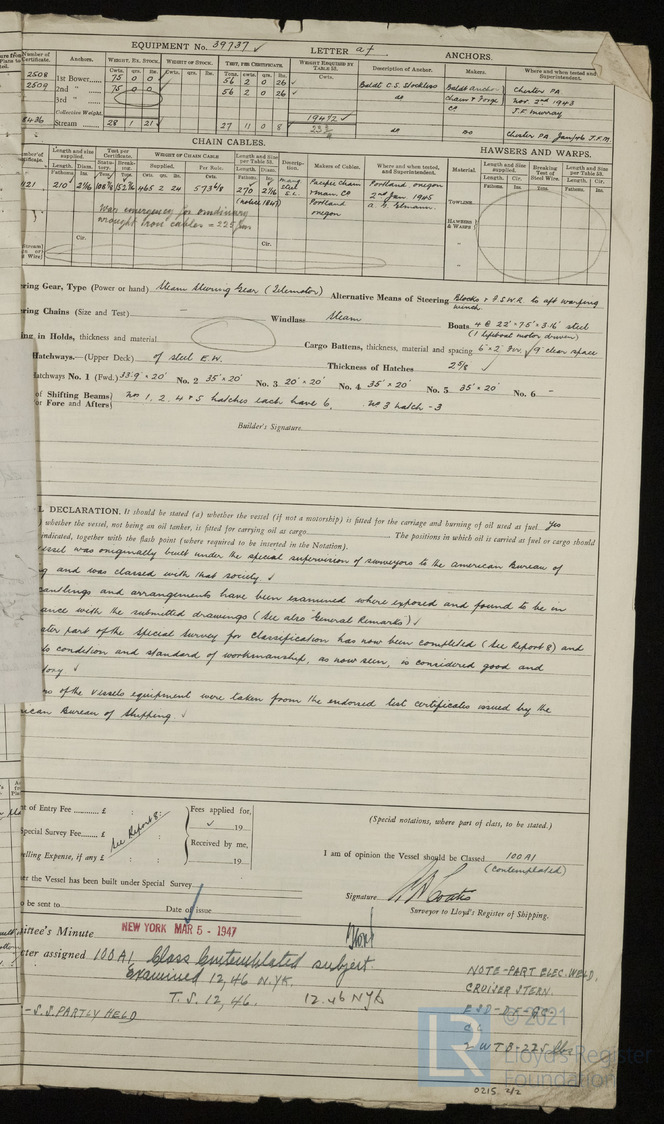 EQUIPMENT No. 39737 ✓ LETTER at ANCHORS.
Number of Certificate. Anchors. WEIGHT, EX. STOCK. WEIGHT OF STOCK. TEST, PER CERTIFICATE. WEIGHT REQUIRED BY TABLE 53. Description of Anchor. Makers. Where and when tested and Superintendent.
Cwts. qrs. lbs. Cwts. qrs. lbs. Tons. cwts. qrs. lbs. Cwts.
2508 1st Bower 75 0 0 ✓ 56 2 0 26 ✓ Baldt C.S. Stockless Baldt Anchor Chester PA
2509 2nd " 75 0 0 56 2 0 26 ✓ do Chain & Forge Nov. 2nd 1943
3rd " Co J.F. Murray
Collective Weight
8436 Stream 28 1 21 27 11 0 8 do do Chester PA Jan/46 J.F.M.
CHAIN CABLES. HAWSERS AND WARPS.
Length and size supplied. Test per Certificate. WEIGHT OF CHAIN CABLE Length and size per Table 53. Description. Makers of Cables. Where and when tested, and Superintendent. Material. Length and Size supplied. Breaking Test of Steel Wire. Length and Size per Table 53.
Length. Diam. Statutory. Breaking. Supplied. Per Rule. Length. Diam. Length. Cir. Length. Cir.
1121 210 2 1/16 465 2 24 573 270 2 1/16 steel Pacific Chain Portland, Oregon
Portland 2nd Jan. 1945
oregon
War emergency for ordinary
wrought iron cables = 225 fm
TOWLINE
HAWSERS & WARPS
ring Gear, Type (Power or hand) Steam Steering Gear (Telemotor) Alternative Means of Steering Blocks & F.S.W.R. to aft warping
winch
ring Chains (Size and Test) — Windlass Steam Boats 4 @ 22' × 7.5' × 3.16' steel
(1 lifeboat motor driven)
ing in Holds, thickness and material Cargo Battens, thickness, material and spacing 6" × 2" Fir. ✓ 9" clear space
Hatchways.—(Upper Deck) of steel E.W. Thickness of Hatches 2 5/8 ✓
Hatchways No. 1 (Fwd.) 33'9" × 20' No. 2 35' × 20' No. 3 20' × 20' No. 4 35' × 20' No. 5 35' × 20' No. 6 —
of Shifting Beams
or Fore and Afters
No 1, 2, 4 & 5 hatches each have 6. No 3 hatch - 3
Builder's Signature
L DECLARATION. It should be stated (a) whether the vessel (if not a motorship) is fitted for the carriage and burning of oil used as fuel yes
) whether the vessel, not being an oil tanker, is fitted for carrying oil as cargo The positions in which oil is carried as fuel or cargo should
indicated, together with the flash point (where required to be inserted in the Notation).
essel was originally built under the special supervision of surveyors to the American Bureau of
g and was classed with that society ✓
cantlings and arrangements have been examined where exposed and found to be in
ance with the submitted drawings (See also General Remarks) ✓
ater part of the Special Survey for classification has now been completed (See Report 8) and
condition and standard of workmanship, as now seen, is considered good and
tory ✓
rs of the vessels equipment were taken from the endorsed test certificates issued by the
ican Bureau of Shipping ✓
t of Entry Fee £ : : Fees applied for, 19
(Special notations, where part of class, to be stated.)
Special Survey Fee £ : : See Report 8 Received by me, 19
elling Expense, if any £ : :
I am of opinion the Vessel should be Classed 100 A1
(Contemplated)
er the Vessel has been built under Special Survey
Signature
Surveyor to Lloyd's Register of Shipping.
to be sent to Date of issue
ittee's Minute NEW YORK MAR 5 - 1947
cter assigned 100 A1. Class Contemplated subject.
Examined 12,46 N.Yk.
T.S. 12,46. 12.46 NYk
- S.S. PARTLY HELD
NOTE - PART ELEC. WELD.
CRUISER STERN.
ESD - DF - GC.
CL
2 WTB - 225 lbs
© 2021
LR Lloyd's Register
Foundation
0215 2/2